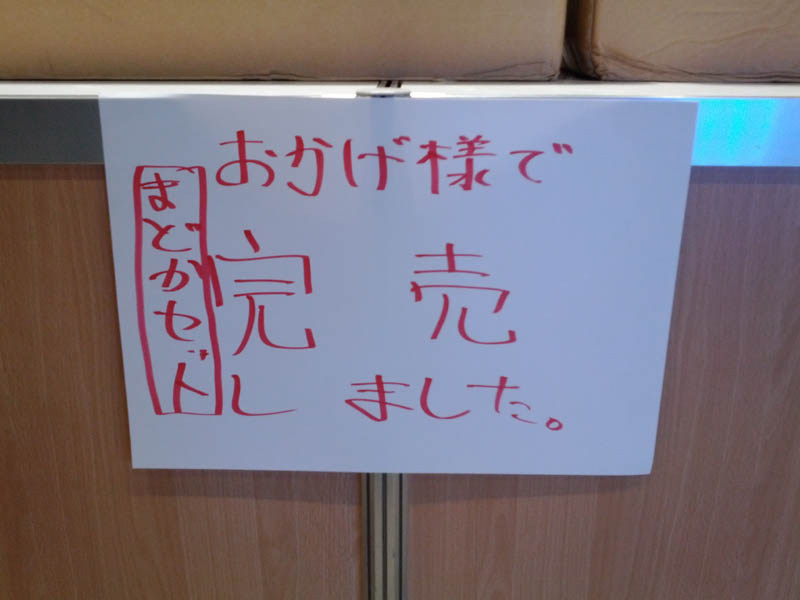 まどかセット
おかげ様で
完売
しました。